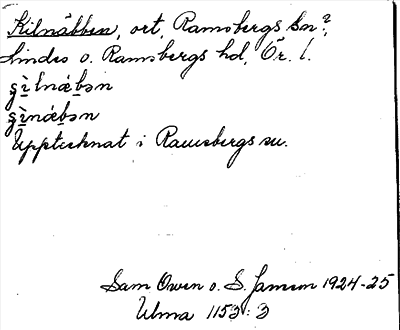 Kilnäbben, ort, Ramsbergs sn?,
Lindes o. Ramsbergs hd, Ör. l.
gìlnǽbən
gìnǽbən
Upptecknat i Ramsbergs sn.
Sam Owen o. S. Janson 1924-25
Ulma 1153:3